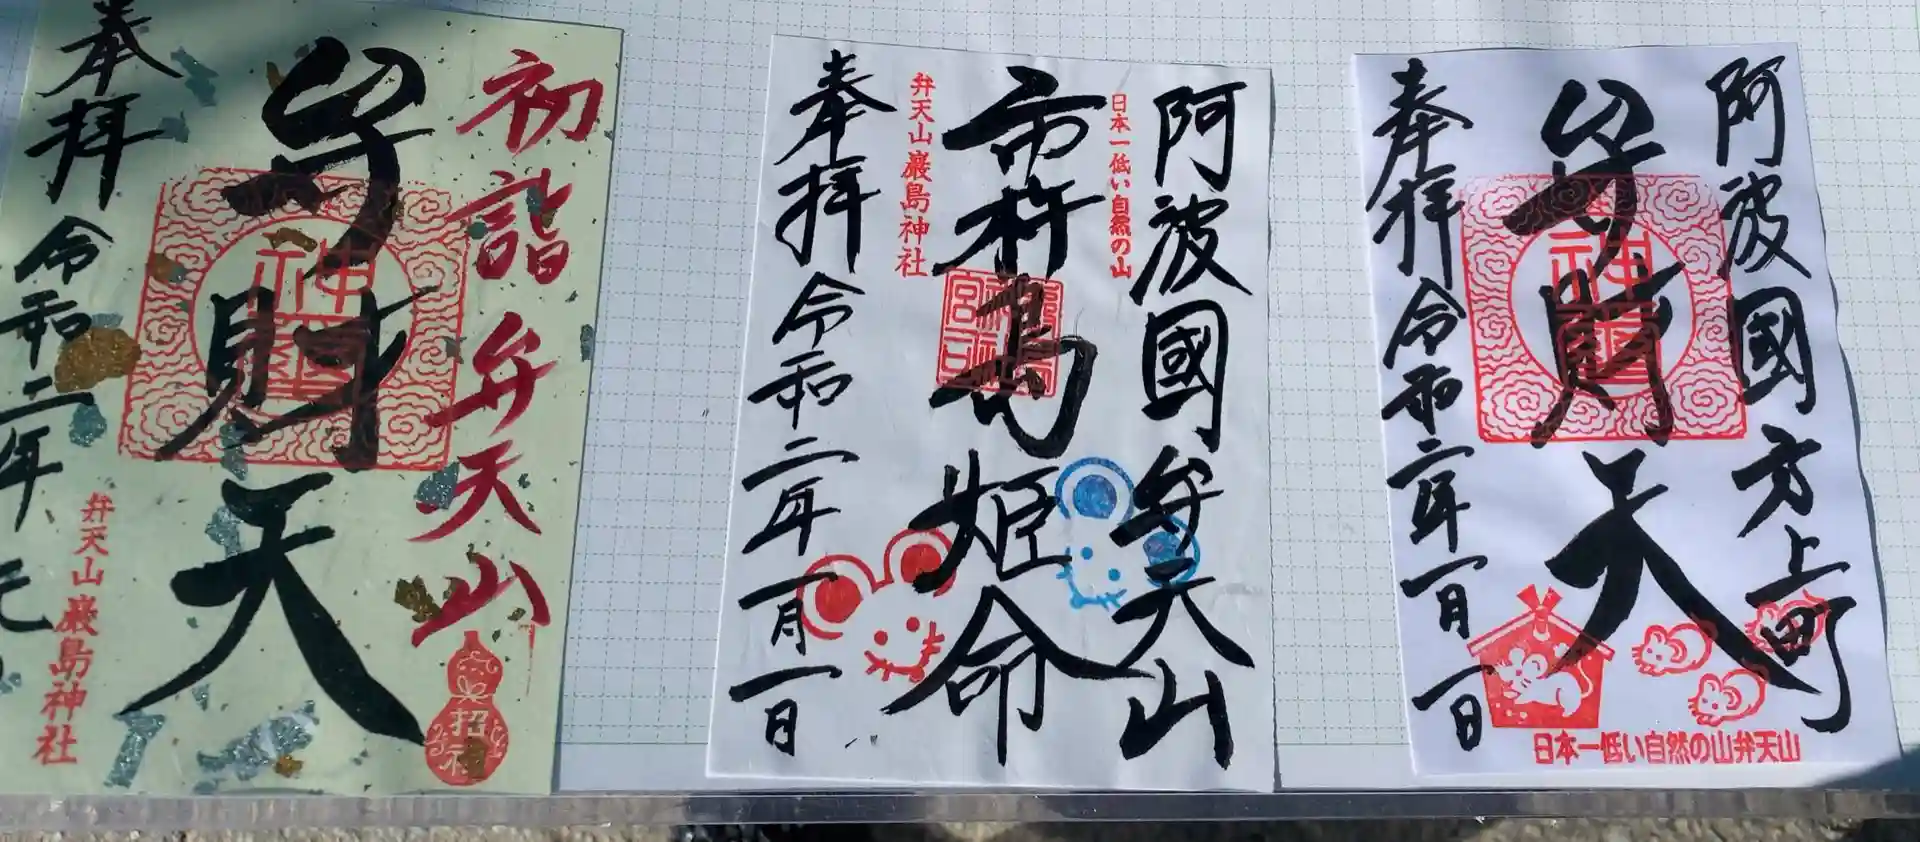 初詣弁天山
弁財天
奉拝 令和二年 元
弁天山巌島神社
招福
阿波國弁天山
日本一低い自然の山
市杵嶋姫命
弁天山巌島神社
奉拝 令和二年一月一日
阿波國方上町
弁財天
奉拝 令和二年一月一日
日本一低い自然の山弁天山